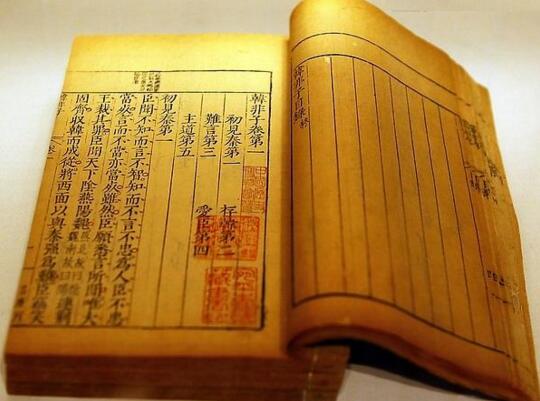 韓非子目錄終
韓非子卷第一
初見秦第一 存韓第二
難言第三 愛臣第四
主道第五
初見秦第一
臣聞不知而言不智知而不言不忠爲人臣不忠
當死言而不當亦當死雖然臣願悉言所聞唯大
王裁其罪臣聞天下陰燕陽魏魏南故曰陽連荊
固齊收韓而成從將西面以與秦強爲難臣竊笑